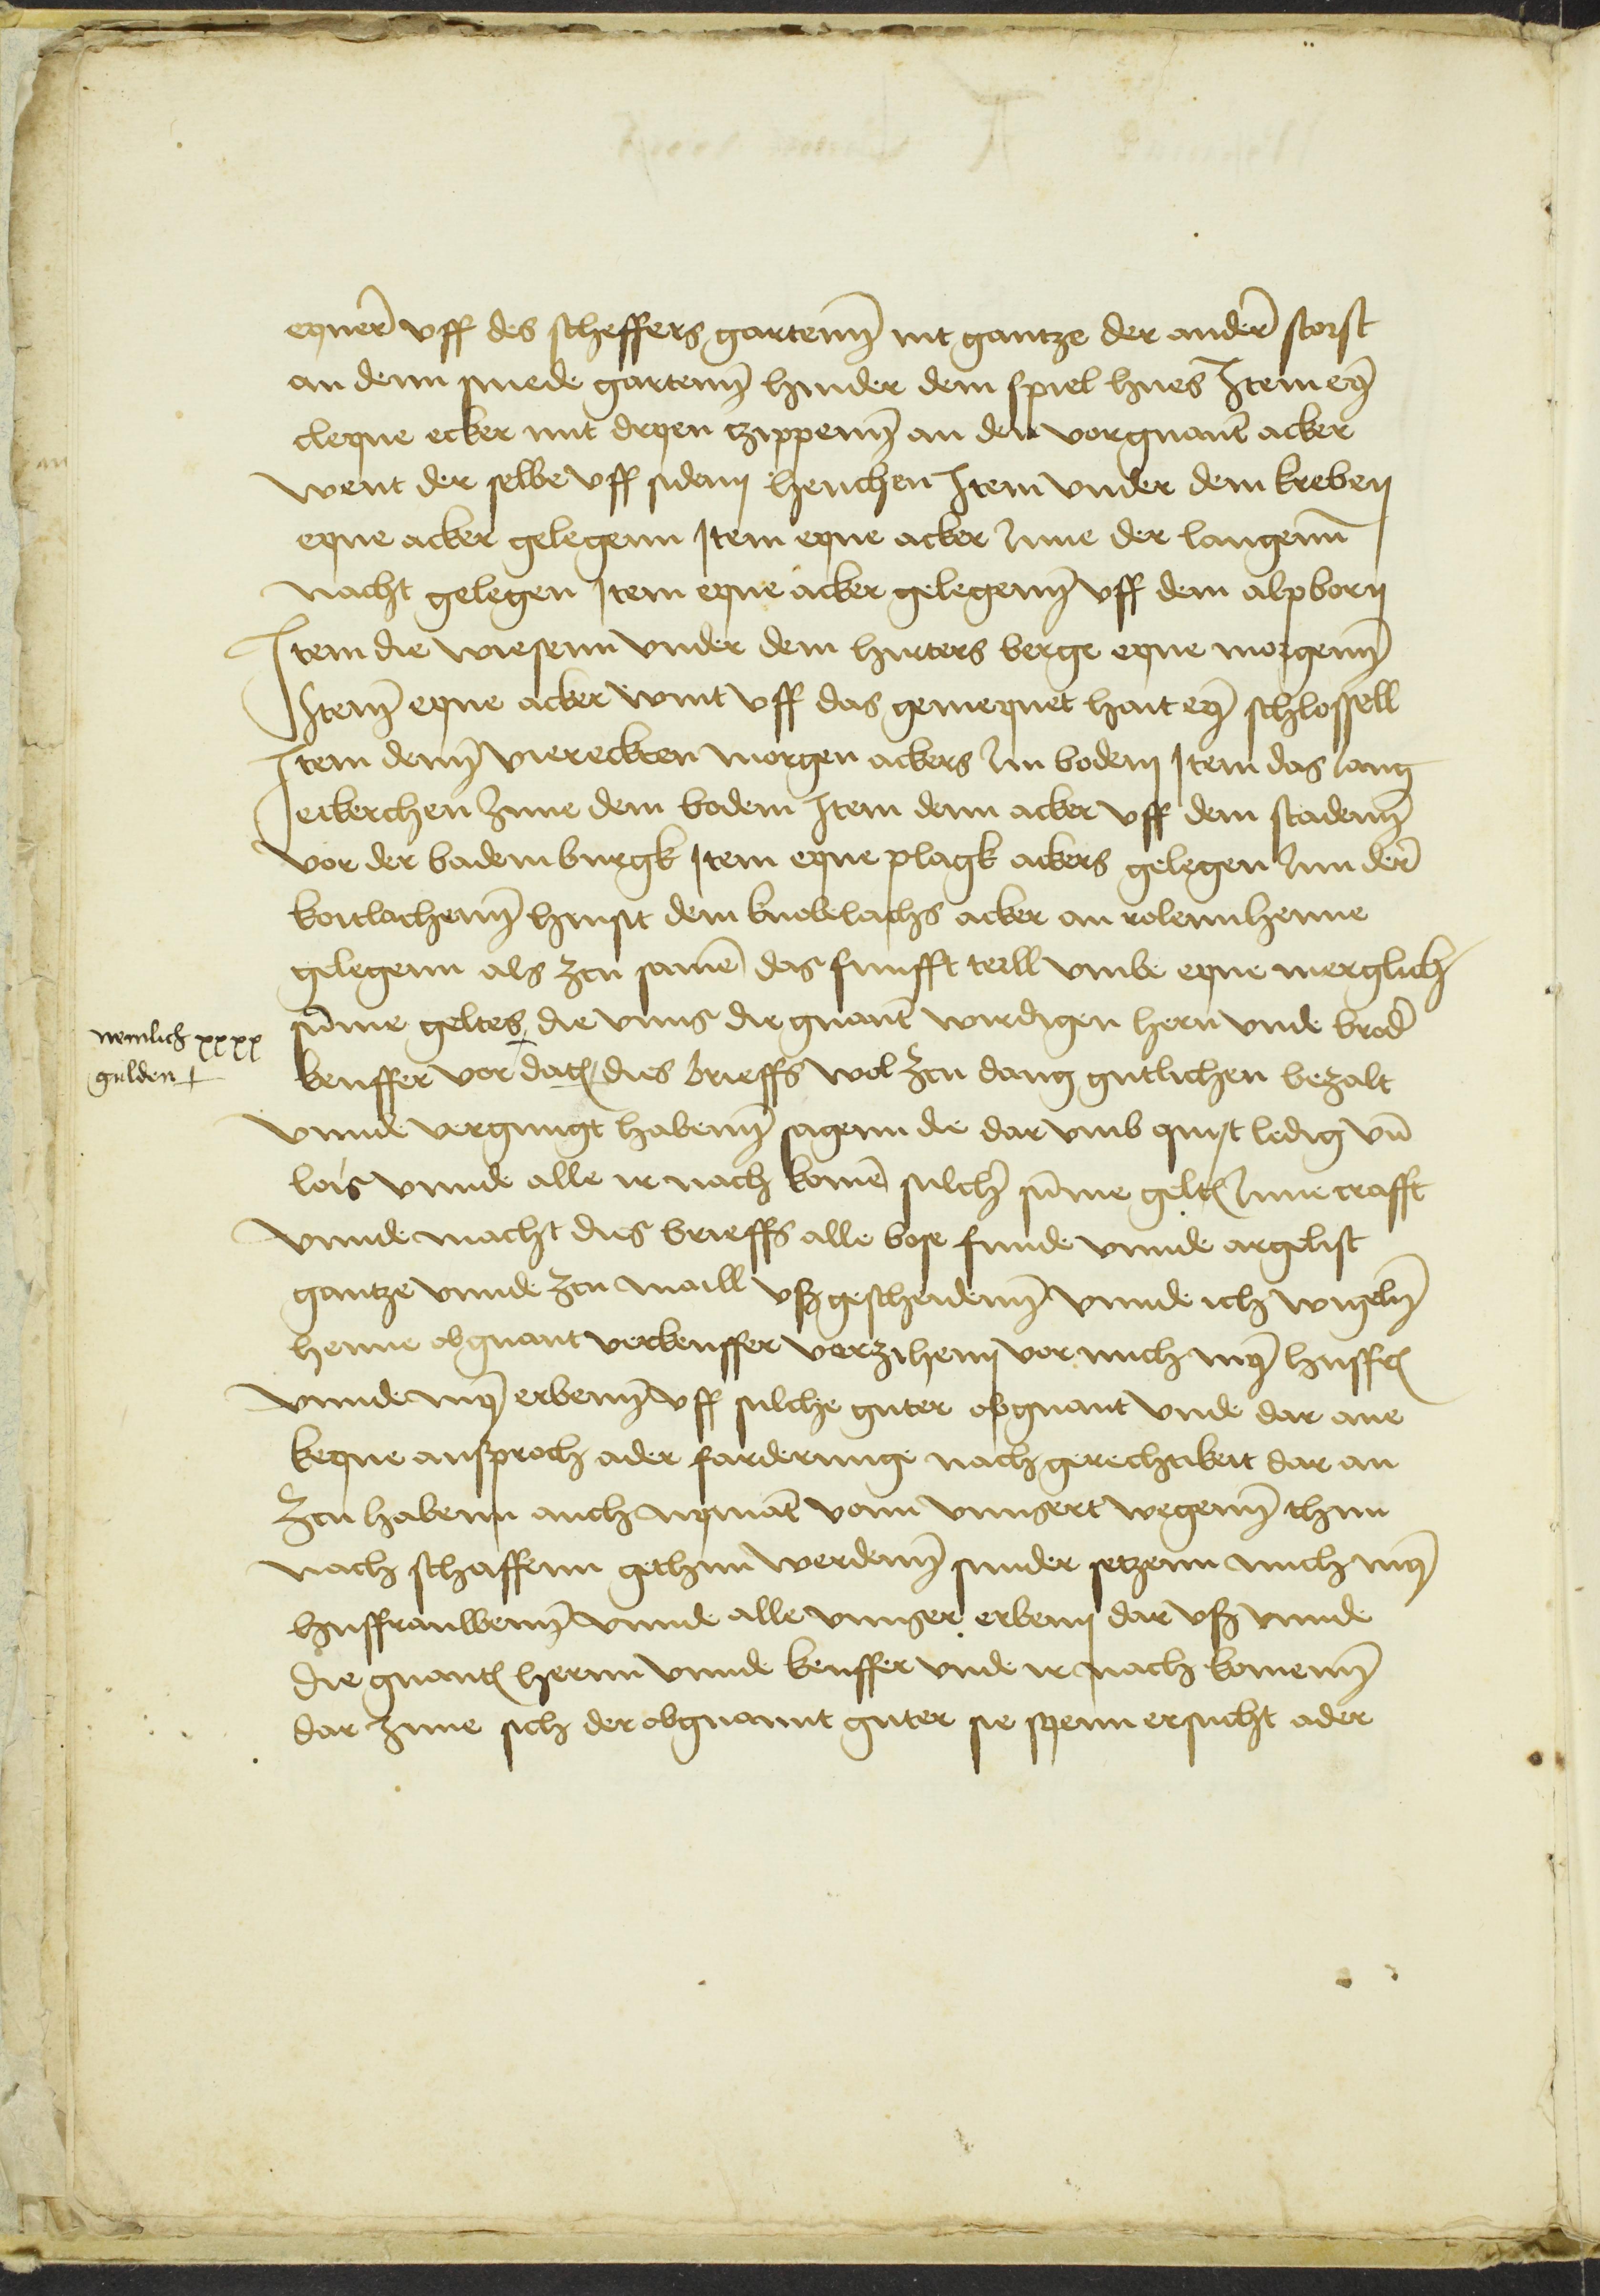 eyner uff des scheffers gartenn nit gantze der ander storst
an denn smede gartenn hinder dem spiel hues Item eyn
cleyne ecker mit dryen czippenn an den vorgnant acker
went der selbe uff siden henchen Item under dem kreben
eyne acker gelegenn Item eyne acker Inne der langenn
nacht gelegen Item eyne acker gelegenn uff dem alpborn
Item die wiesenn under dem hirters berge eyne morgenn
Item eyne acker wint uff das gemeynet hait eyn schlossell
Item denn viereckten morgen ackers Im boden Item das lang
eckerchen Inne dem bodem Item denn acker uff dem stadenn
vor der badenburgk Item eyne plagk ackers gelegen Inn der
kortlachenn hinsit dem knobelachs acker an rolennhenne
gelegenn als zcu samen das funfft teill umbe eyne merglich
sume geltes die unns die gnant wirdigen hern unde brod
nemlich xxxx
gulden +
keuffer vor dat dies brieffs wol zcu dang gutlichen bezalt
unnde vergnugt habenn sagenn die dar umb quyt ledig un
lois unnde alle ir nach komen sulcher sume gelt Inne crafft
unnde macht dies brieffs alle bose funde unnde argelist
gantze unnde zcu maill uß gescheidenn unnde ich wigeln
henne obgnant verkeuffer verzihenn vor mich myn huffr
unnde myn erbenn uff sulche guter obgnant unde dar ane
keyne ansproch ader farderunge nach gerechtikeit dar an
zcu habenn auch nymant vonn unnsert wegenn thun
nach schaffenn gethun werdenn sunder setzenn mich myn
huffrauwenn unnde alle unnser erbenn dar uß unnde
die gnant hernn unnde keuffer unde ir nach komenn
dar Inne sich der obgnannt guter sie syenn ersucht ader